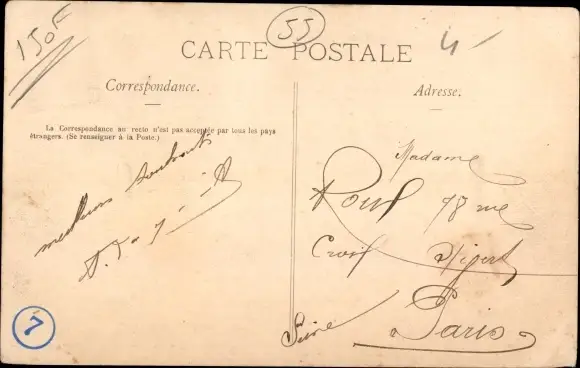 150F
55
4-
CARTE POSTALE
Correspondance.
Adresse.
La Correspondance au recto n'est pas acceptée par tous les pays
étrangers. (Se renseigner à la Poste.)
meilleurs souhaits
Madame
78 rue
Paris
Seine
7